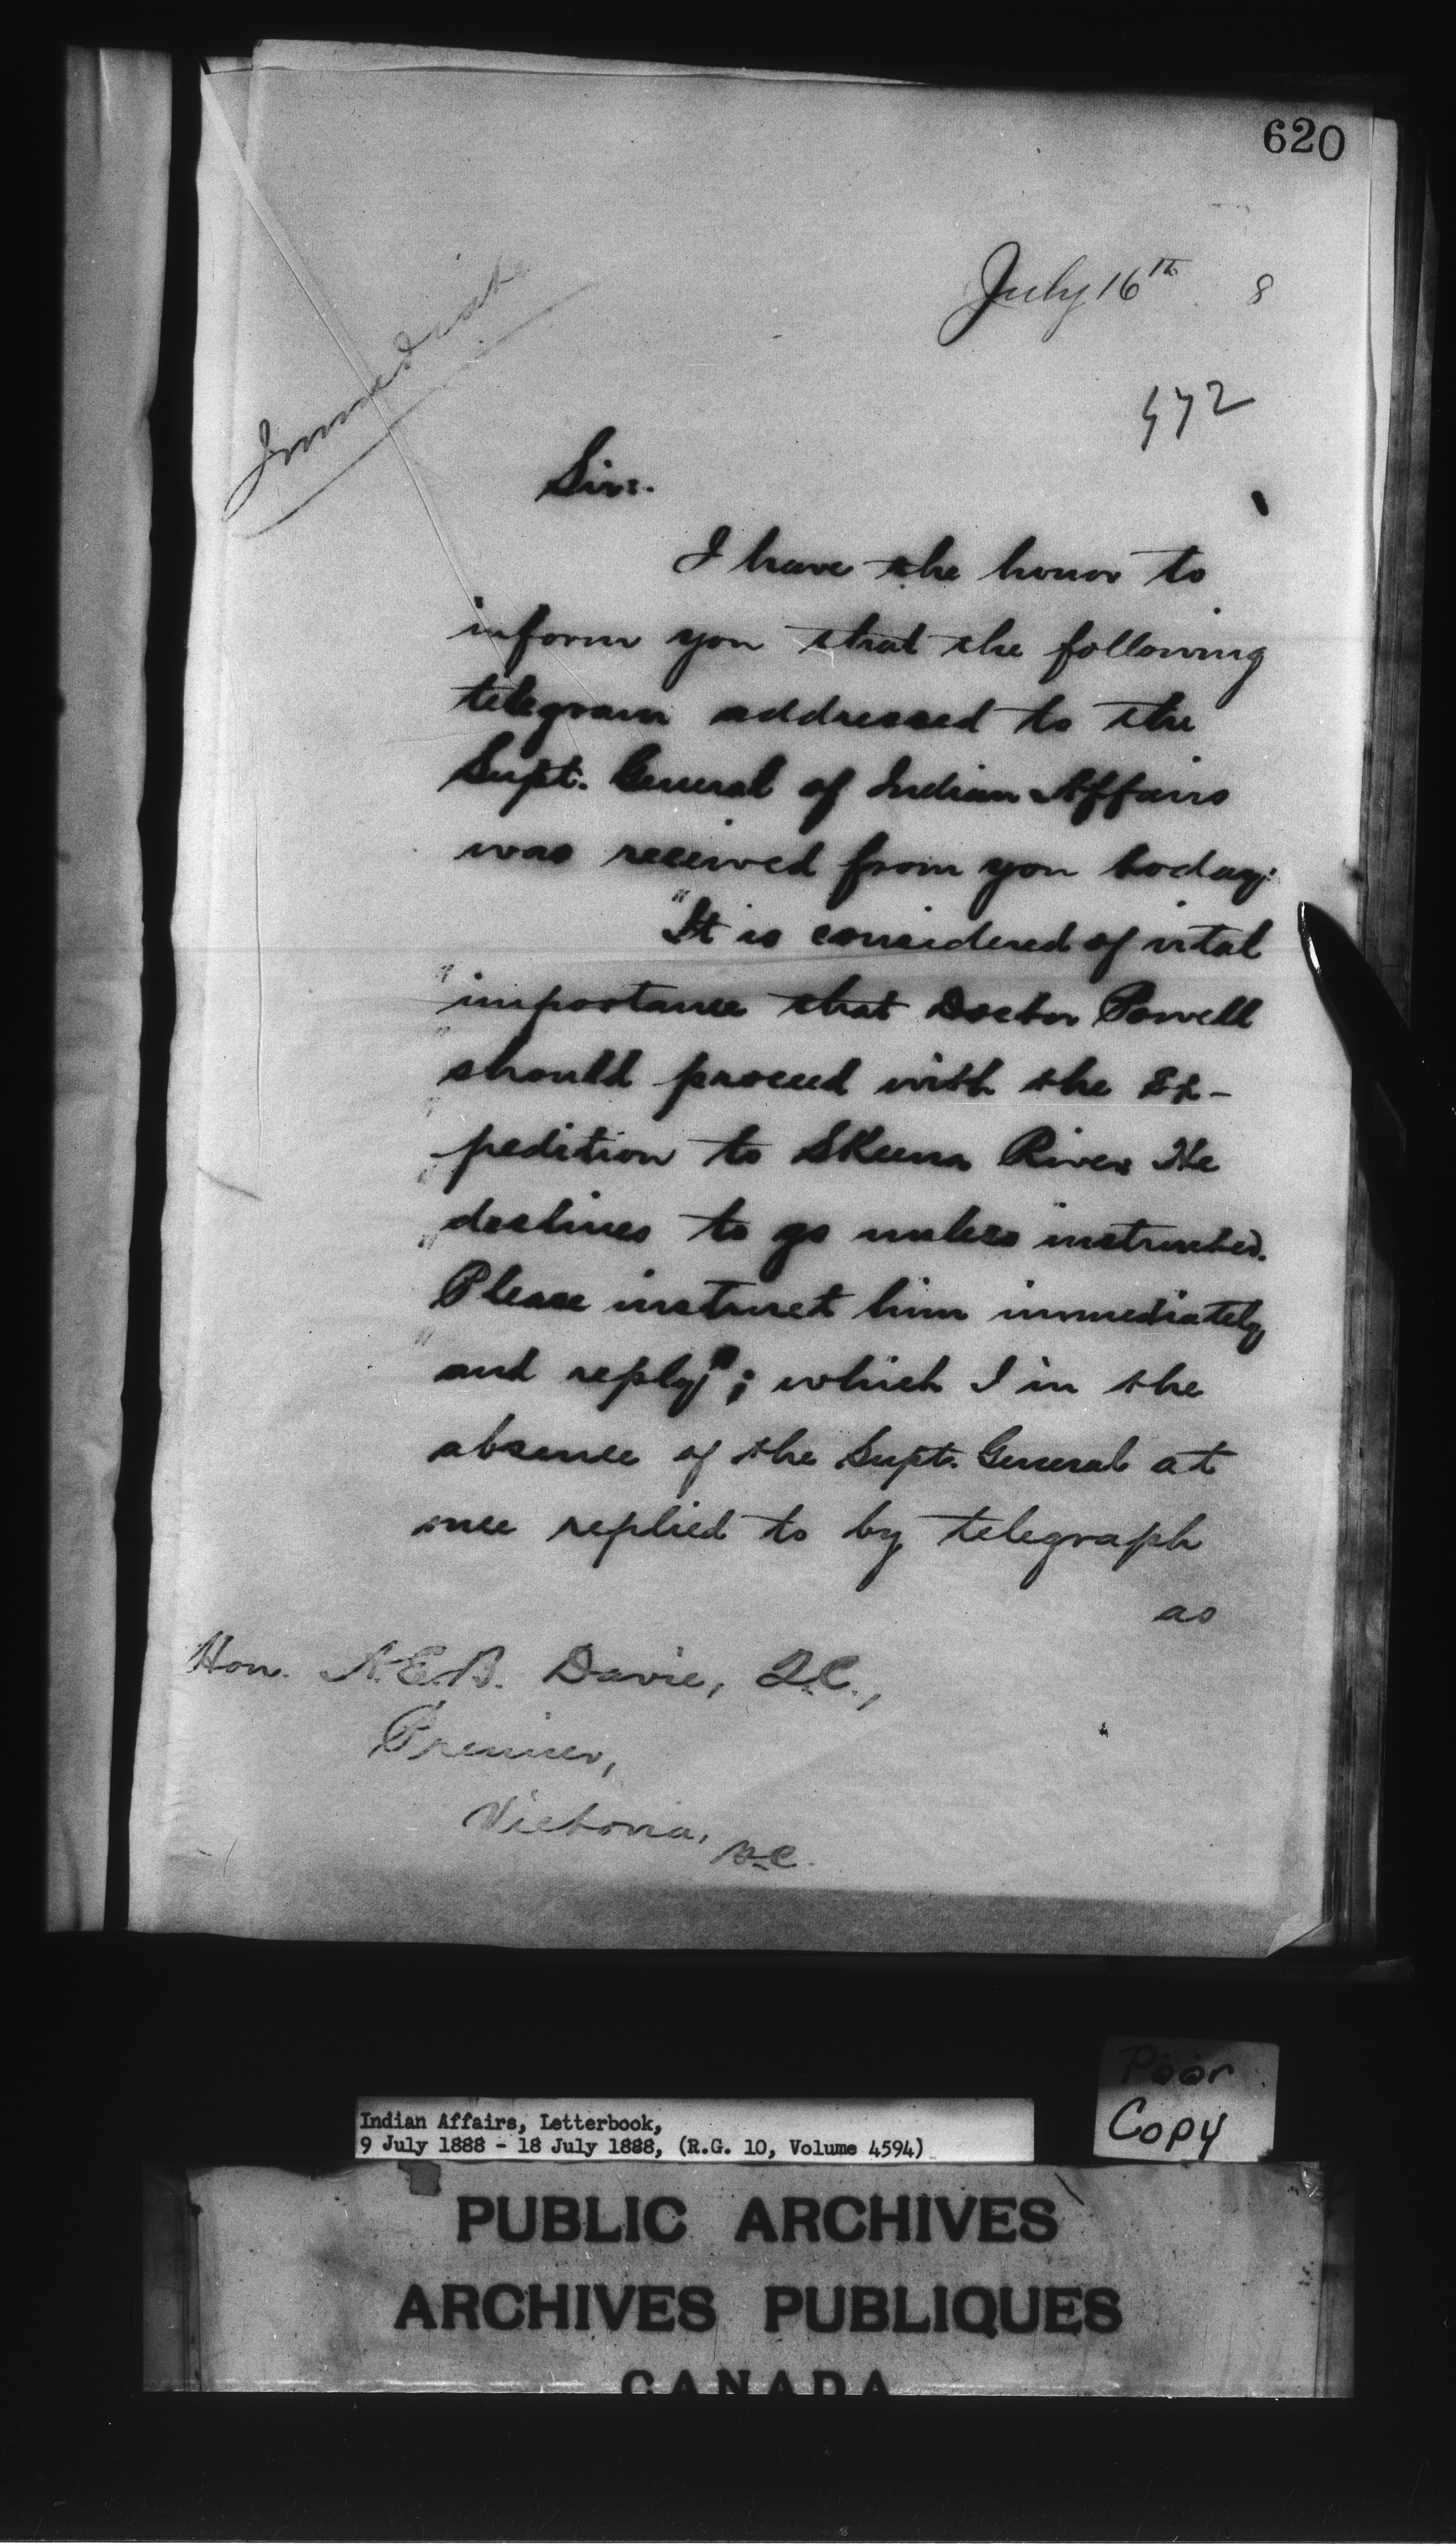 620
July 16th 8
Immediate
472
Sir:
I have the honor to
inform you that the following
telegram addressed to the
Supt. General of Indian Affairs
was received from you today:
"It is considered of vital
" importance that Doctor Powell
" should proceed with the Ex-
" pedition to Skeena River He
" declines to go unless instructed.
" Please instruct him immediately
" and reply"; which I in the
absence of the Supt. General at
once replied to by telegraph
as
Hon. A.E.B. Davie, Q.C.,
Premier,
Victoria,
B.C.
Poor
Copy
Indian Affairs, Letterbook,
9 July 1888 - 18 July 1888, (R.G. 10, Volume 4594)
PUBLIC ARCHIVES
ARCHIVES PUBLIQUES
CANADA